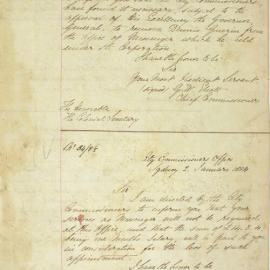 have found it necessary, subject to the
approval of His Excellency the Governor
General, to remove Dennis Guerin from
the Office of Messenger which he held
under the Corporation
I have the honor to be
Sir
Your most Obedient Servant
Chief Commissioner
The Honorable
The Colonial Secretary
City Commissioners Office
Sydney 2 January 1854
Sir
I am directed by the City
Commissioners to inform you that your
services as Messenger will not be required
at this Office, and that the sum of
being one months Salary will be paid to you
in consideration for the loss of such
appointment.
I have the honor to be